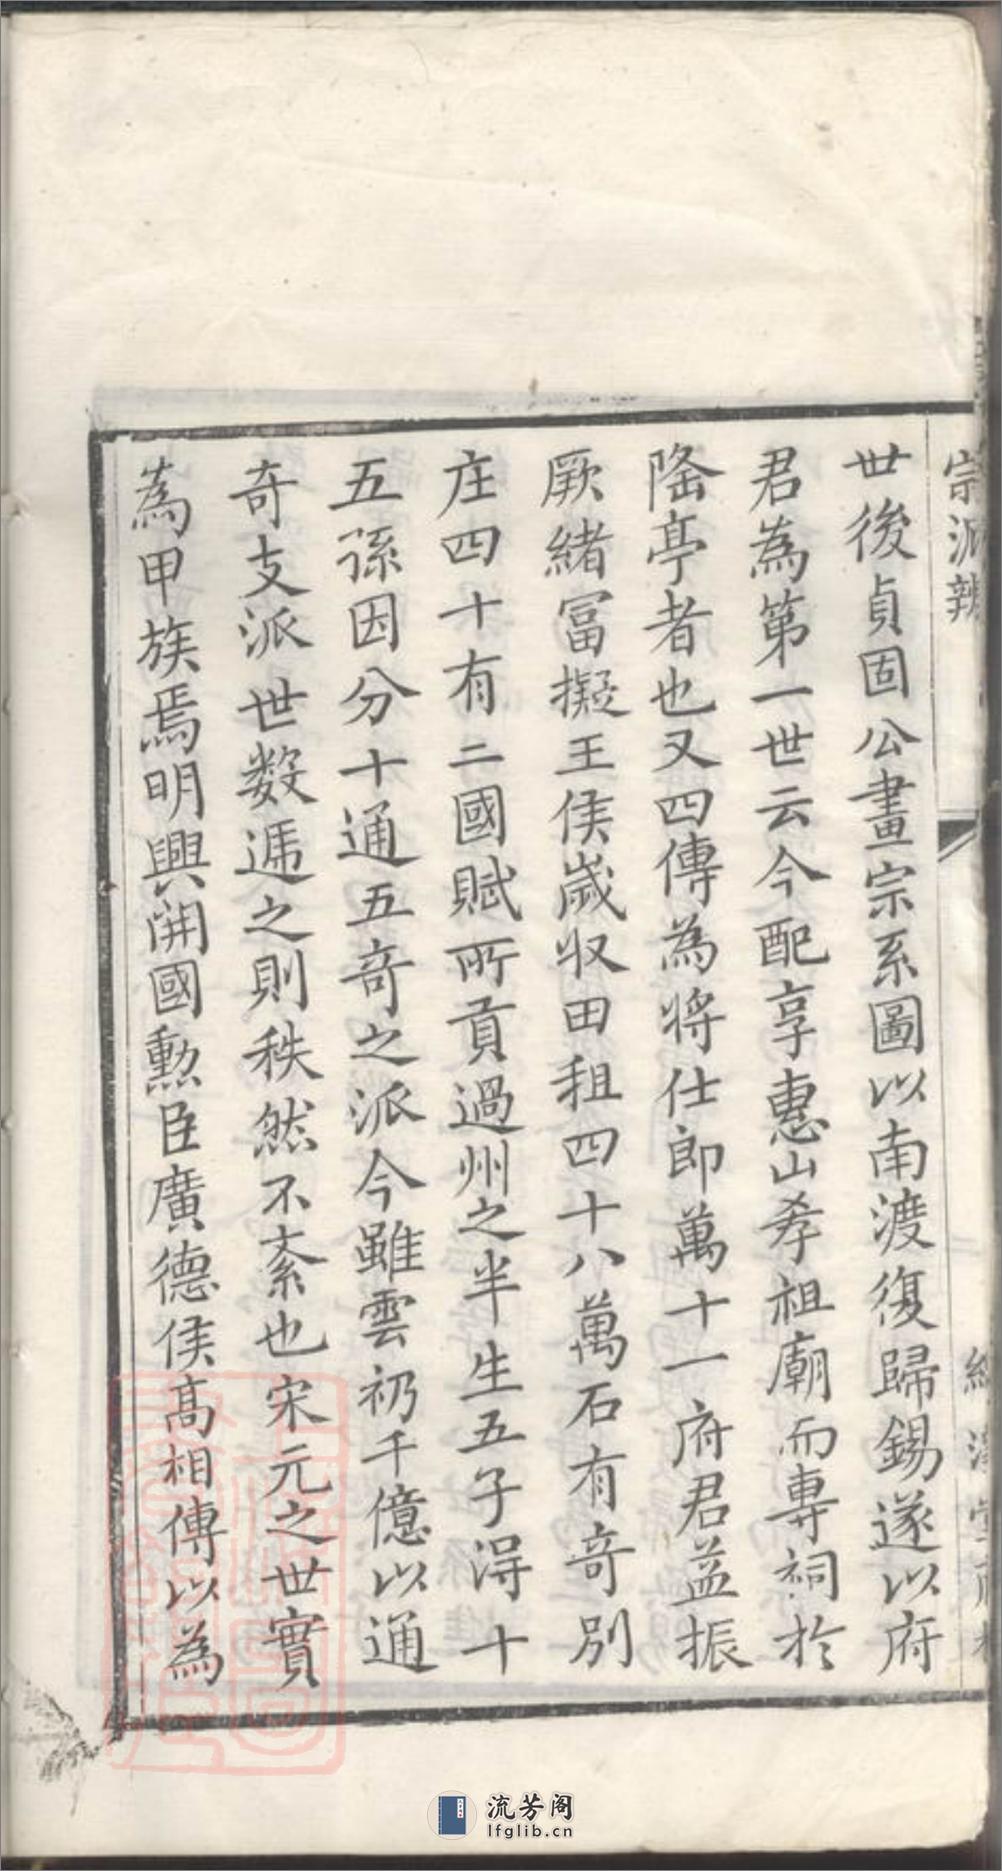 宗派辨
世後貞固公畫宗系圖以南渡復歸錫遂以府
君為第一世云今配享惠山孝祖廟而專祠於
陸亭者也又四傳為將仕郎萬十一府君益振
厥緒富擬王侯歲收田租四十八萬石有奇別
庄四十有二國賦所貢過州之半生五子淂十
五孫因分十通五奇之派今雖雲礽千億以通
奇支派世数遞之則秩然不紊也宋元之世實
為甲族焉明興開國勲臣廣德侯高相傳以為
流芳阁
lfglib.cn